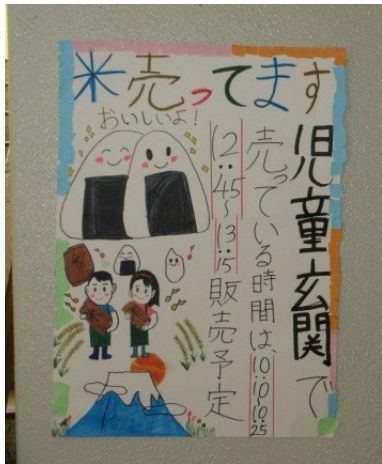 米売ってます
おいしいよ!
児童玄関で
売っている時間は、10:10~10:25
12:45~13:15販売予定